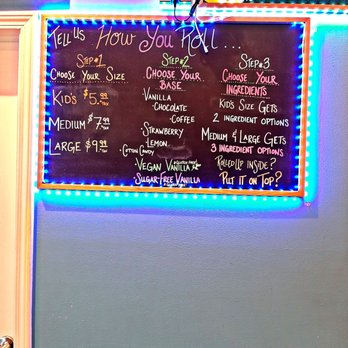 Tell us How You Roll...
Step #1
Choose Your Size
Kid's $5.99
Medium $7.99
Large $9.99
Step #2
Choose Your
Base
Vanilla
- Chocolate
- Coffee
Strawberry
Lemon
- Cotton Candy
- Vegan Vanilla
Sugar-Free Vanilla
Step #3
Choose Your
Ingredients
Kid's Size Gets
2 ingredient options
Medium & Large Gets
3 ingredient options
Rolled Up Inside?
Put it on Top?